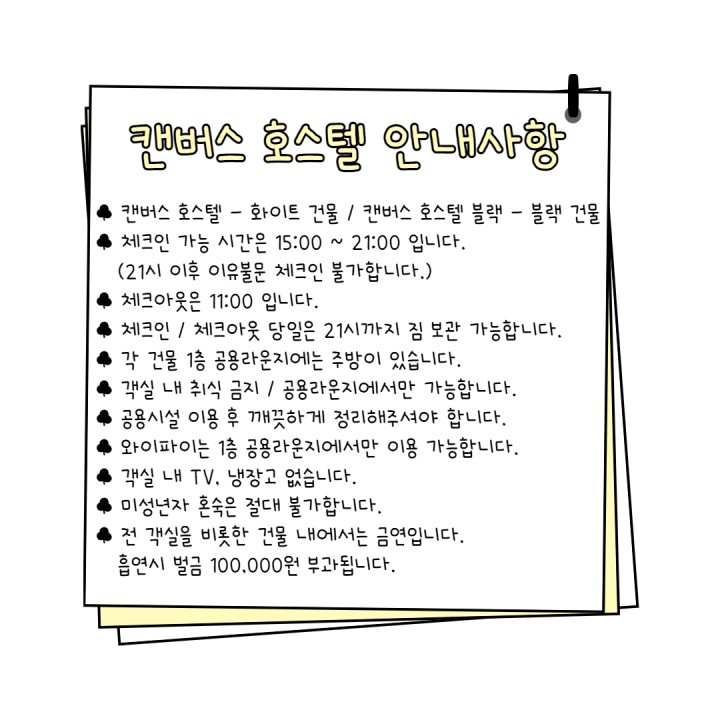 캔버스 호스텔 안내사항
♣ 캔버스 호스텔 - 화이트 건물 / 캔버스 호스텔 블랙 - 블랙 건물
♣ 체크인 가능 시간은 15:00 ~ 21:00 입니다.
(21시 이후 이유불문 체크인 불가합니다.)
♣ 체크아웃은 11:00 입니다.
♣ 체크인 / 체크아웃 당일은 21시까지 짐 보관 가능합니다.
♣ 각 건물 1층 공용라운지에는 주방이 있습니다.
♣ 객실 내 취식 금지 / 공용라운지에서만 가능합니다.
♣ 공용시설 이용 후 깨끗하게 정리해주셔야 합니다.
♣ 와이파이는 1층 공용라운지에서만 이용 가능합니다.
♣ 객실 내 TV, 냉장고 없습니다.
♣ 미성년자 혼숙은 절대 불가합니다.
♣ 전 객실을 비롯한 건물 내에서는 금연입니다.
흡연시 벌금 100,000원 부과됩니다.